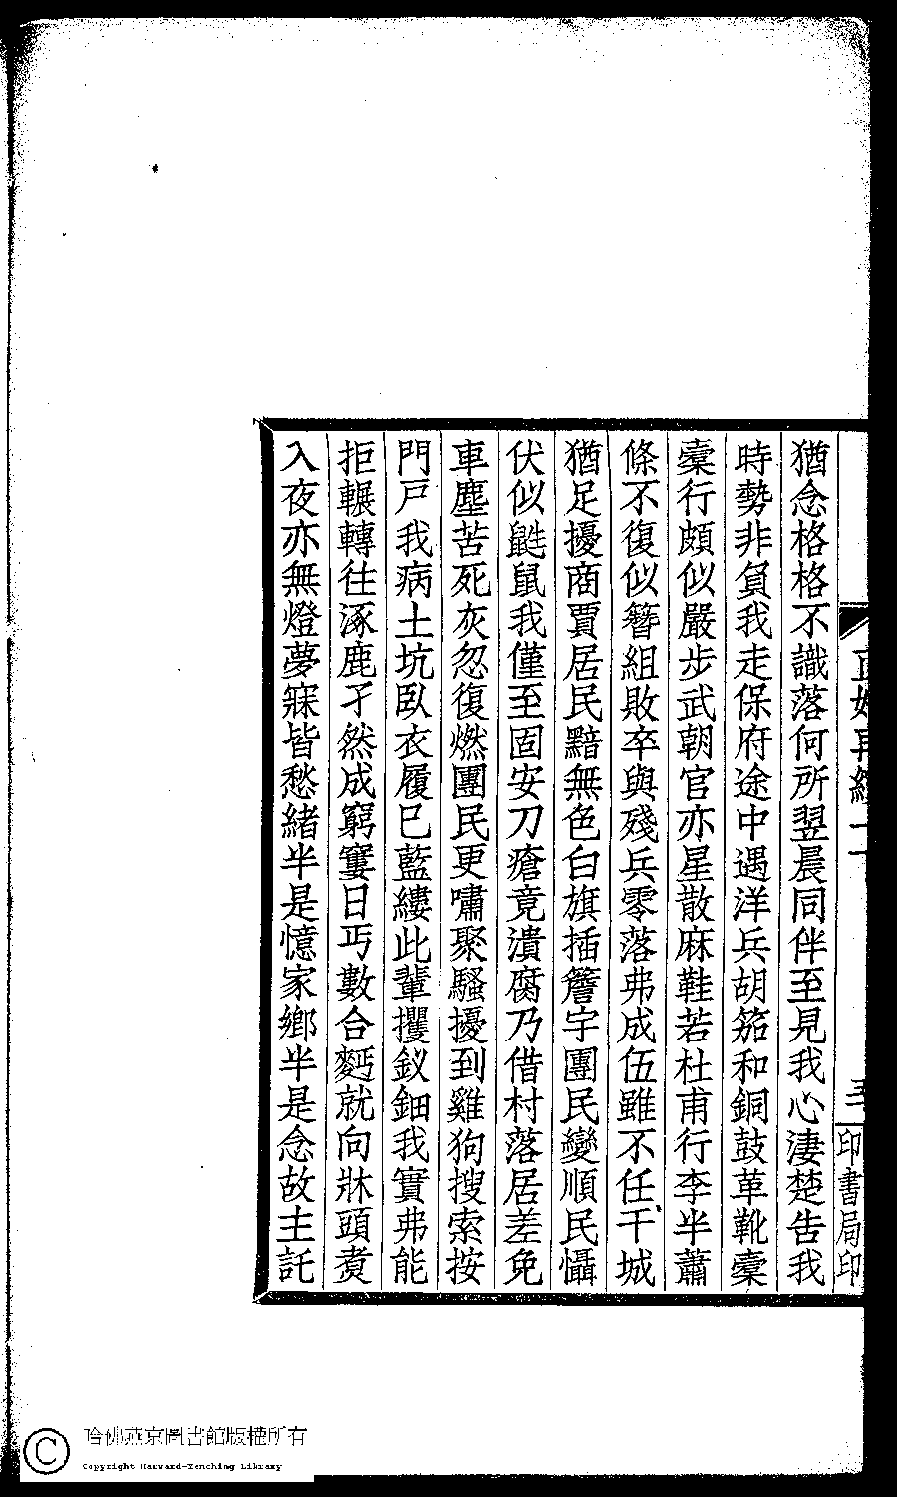 印書局印
猶念格格不識落何所翌晨同伴至見我心淒楚告我
時勢非負我走保府途中遇洋兵胡笳和銅鼓革靴橐
橐行頗似嚴步武朝官亦星散麻鞋若杜甫行李半蕭
條不復似簪組敗卒與殘兵零落弗成伍雖不任干城
猶足擾商賈居民黯無色白旗插簷宇團民變順民懾
伏似鼪鼠我僅至固安刀瘡竟潰腐乃借村落居差免
車塵苦死灰忽復燃團民更嘯聚騷擾到雞狗搜索按
門戶我病土坑臥衣履已藍縷此輩攫釵鈿我實弗能
拒輾轉往涿鹿孑然成窮窶日丐數合麫就向牀頭煑
入夜亦無燈夢寐皆愁緒半是憶家鄉半是念故主託
哈佛燕京圖書館版權所有
Copyright Harvard-Yenching Library